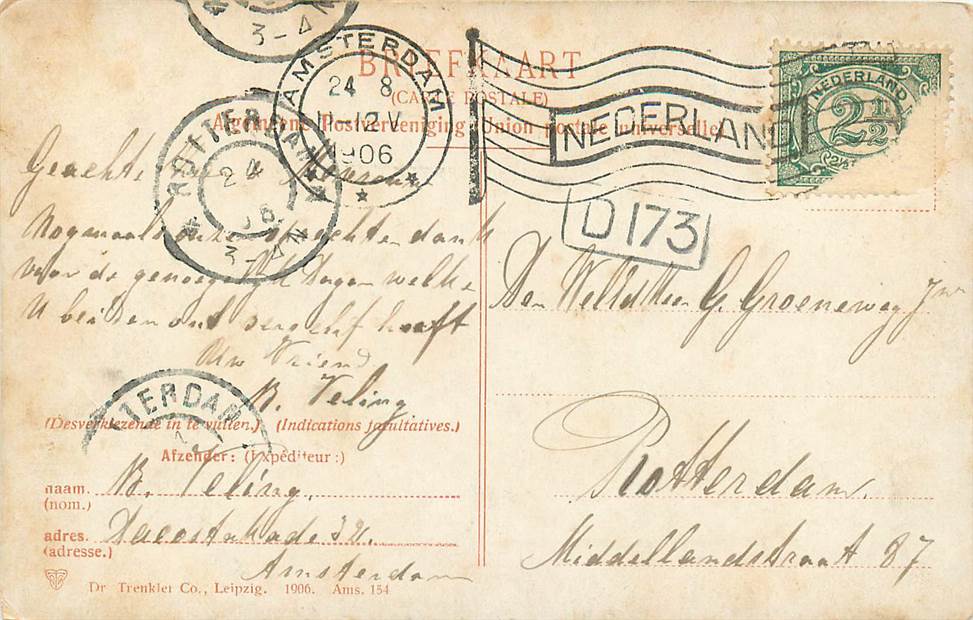 3-4 N
AMSTERDAM
24 8
11-12 V
1906
BRIEFKAART
(CARTE POSTALE)
Algemeene Postvereeniging Union postale universelle
NEDERLAND
NEDERLAND
2½
ROTTERDAM
24
06
3-4 N
D 173
Geachte
Nogmaals onze oprechten dank
voor de genoegelijk dagen welke
U beiden ons verschaft heeft
Uw Vriend
B. Veling
TTERDAM
(Desverkiezende in te vullen.) (Indications facultatives.)
Afzender: (Expéditeur:)
naam. B. Veling.
(nom.)
adres.
(adresse.)
Amsterdam
Dr Trenkler Co., Leipzig. 1906. Ams. 154
Den Heer G. Groeneweg Jr
Rotterdam.
Middellandstraat 87